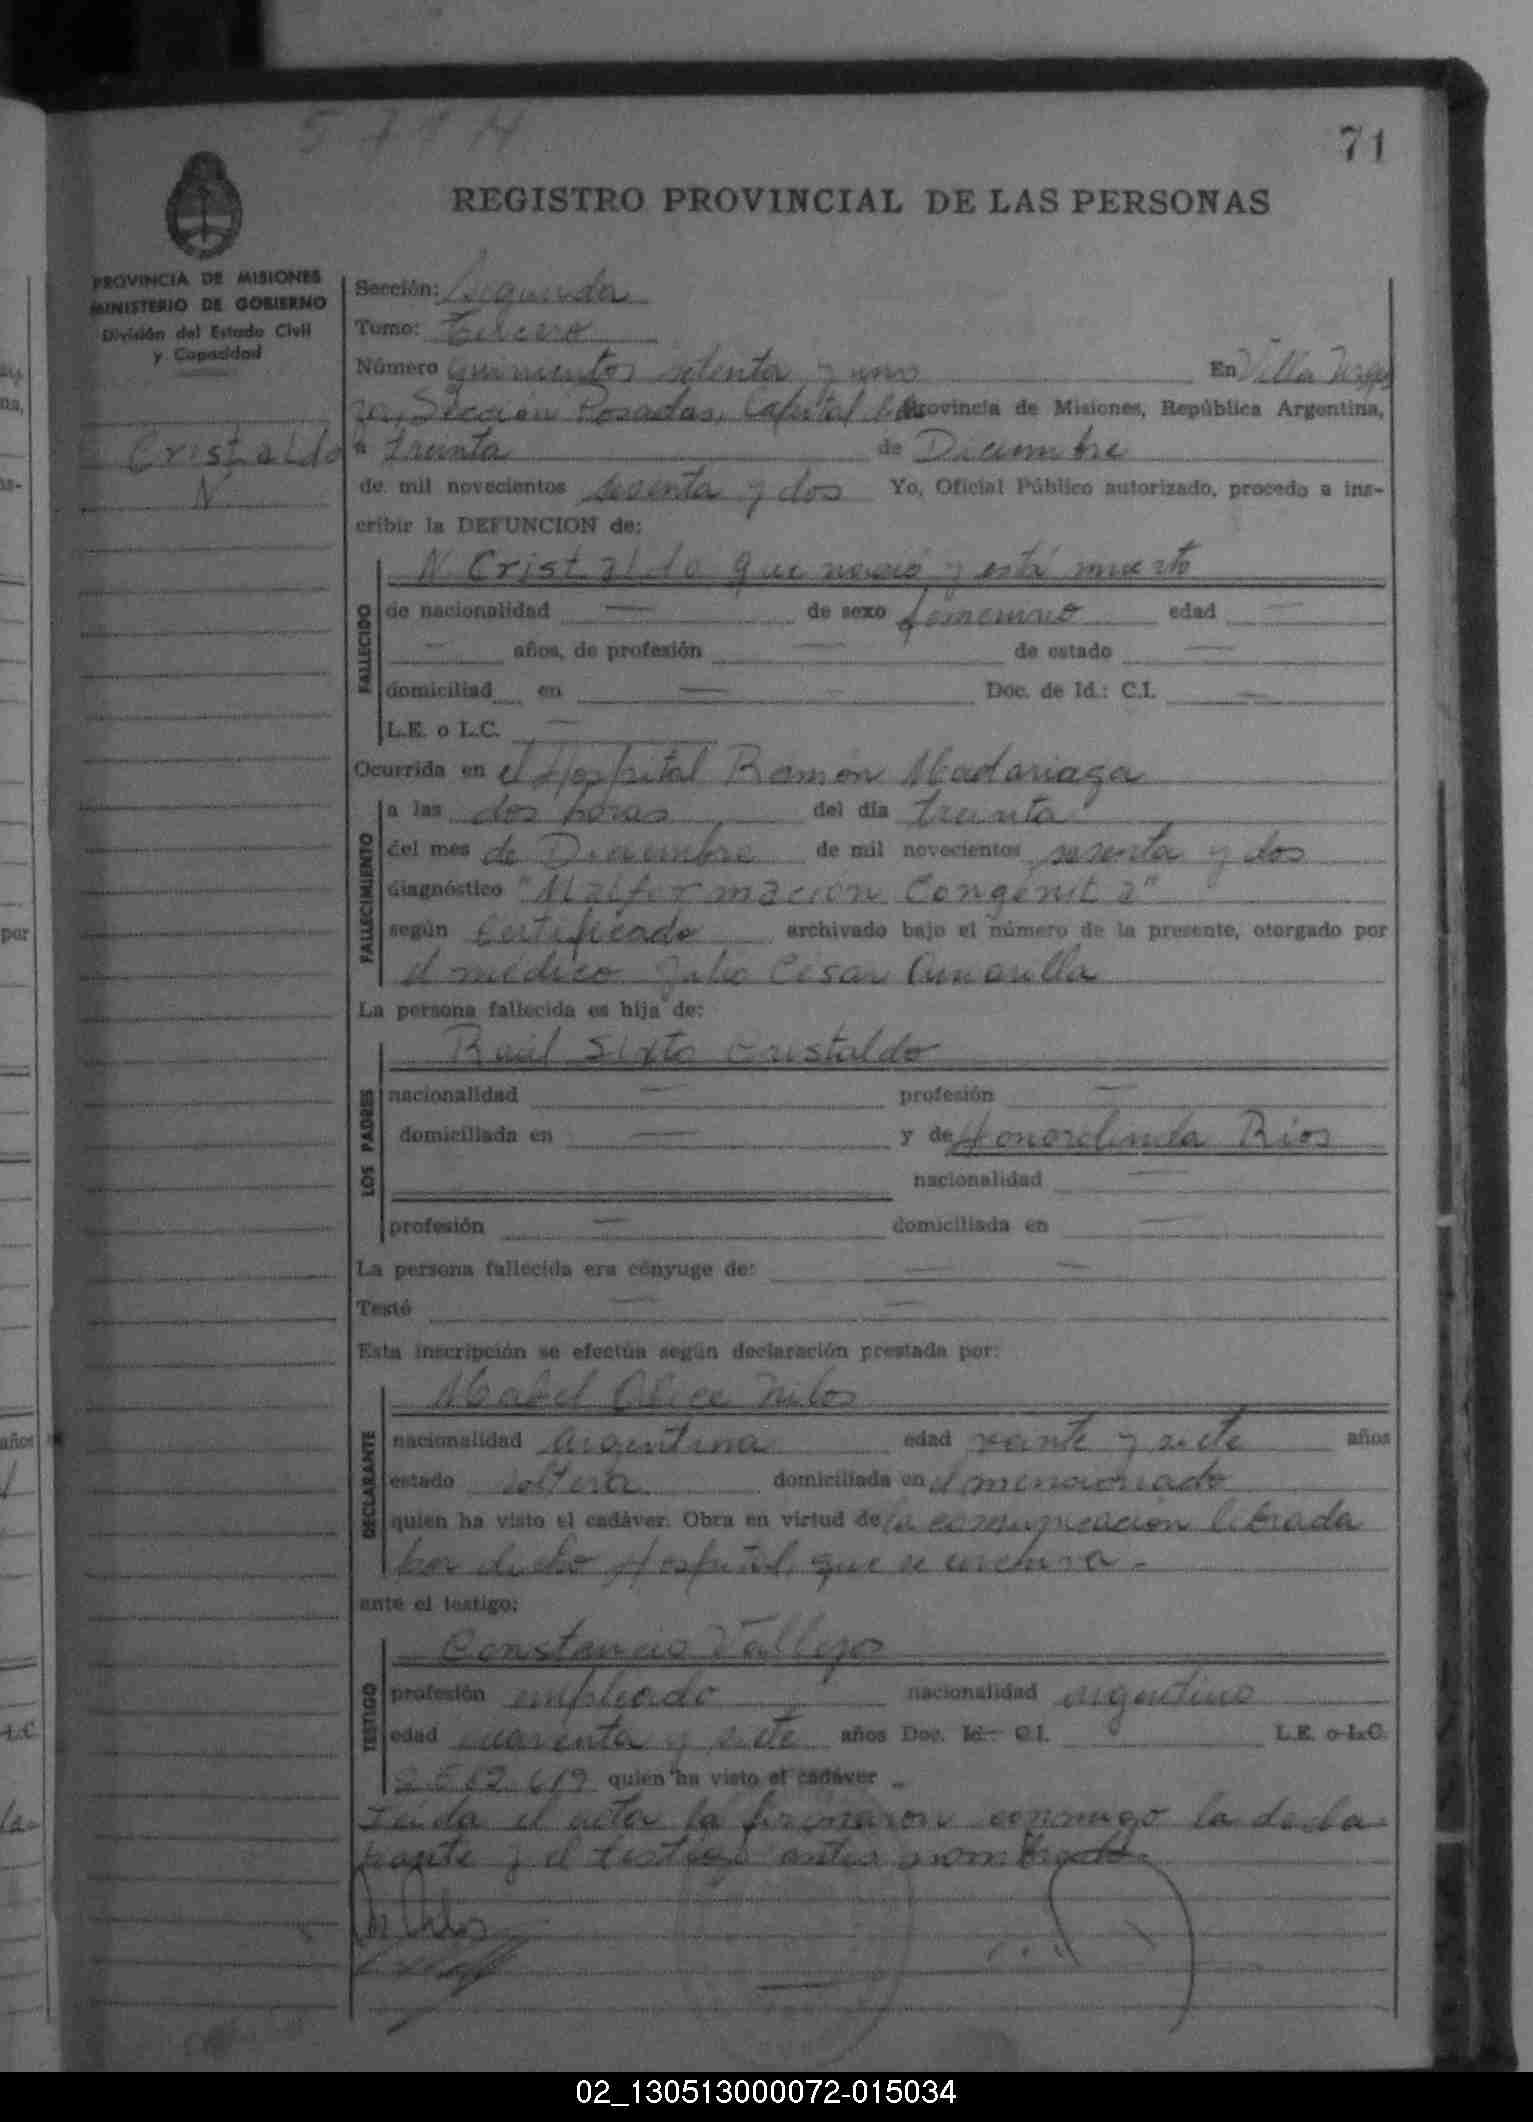 71
REGISTRO PROVINCIAL DE LAS PERSONAS
PROVINCIA DE MISIONES
MINISTERIO DE GOBIERNO
División del Estado Civil
y Capacidad
Cristaldo
N
Sección: Segunda
Tomo: Tercero
Número quinientos setenta y uno En Villa
Sección Posadas, Capital Provincia de Misiones, República Argentina,
a treinta de Diciembre
de mil novecientos sesenta y dos Yo, Oficial Público autorizado, procedo a ins-
cribir la DEFUNCION de:
FALLECIDO
N Cristaldo que nació y está muerto
de nacionalidad — de sexo femenino edad —
— años, de profesión — de estado —
domiciliad en — Doc. de Id.: C.I. —
L.E. o L.C. —
Ocurrida en el Hospital Ramón Madariaga
FALLECIMIENTO
a las dos horas del día treinta
del mes de Diciembre de mil novecientos sesenta y dos
diagnóstico "Malformación Congénita"
según Certificado archivado bajo el número de la presente, otorgado por
el médico Julio César Amarilla
La persona fallecida es hija de:
LOS PADRES
Raúl Sixto Cristaldo
nacionalidad — profesión —
domiciliada en — y de Honorolinda Ríos
nacionalidad —
profesión — domiciliada en —
La persona fallecida era cónyuge de: — —
Testó — —
Esta inscripción se efectúa según declaración prestada por:
DECLARANTE
Mabel Alice
nacionalidad argentina edad veinte y siete años
estado soltera domiciliada en el mencionado
quien ha visto el cadáver. Obra en virtud de la comunicación librada
por dicho Hospital, que se archiva.-
ante el testigo:
TESTIGO
Constancio Vallejos
profesión empleado nacionalidad argentino
edad cuarenta y siete años Doc. Id. C.I. L.E. o L.C.
quien ha visto el cadáver
Leída el acta la firmaron conmigo la decla
rante y el testigo antes nombrado.
02_130513000072-015034